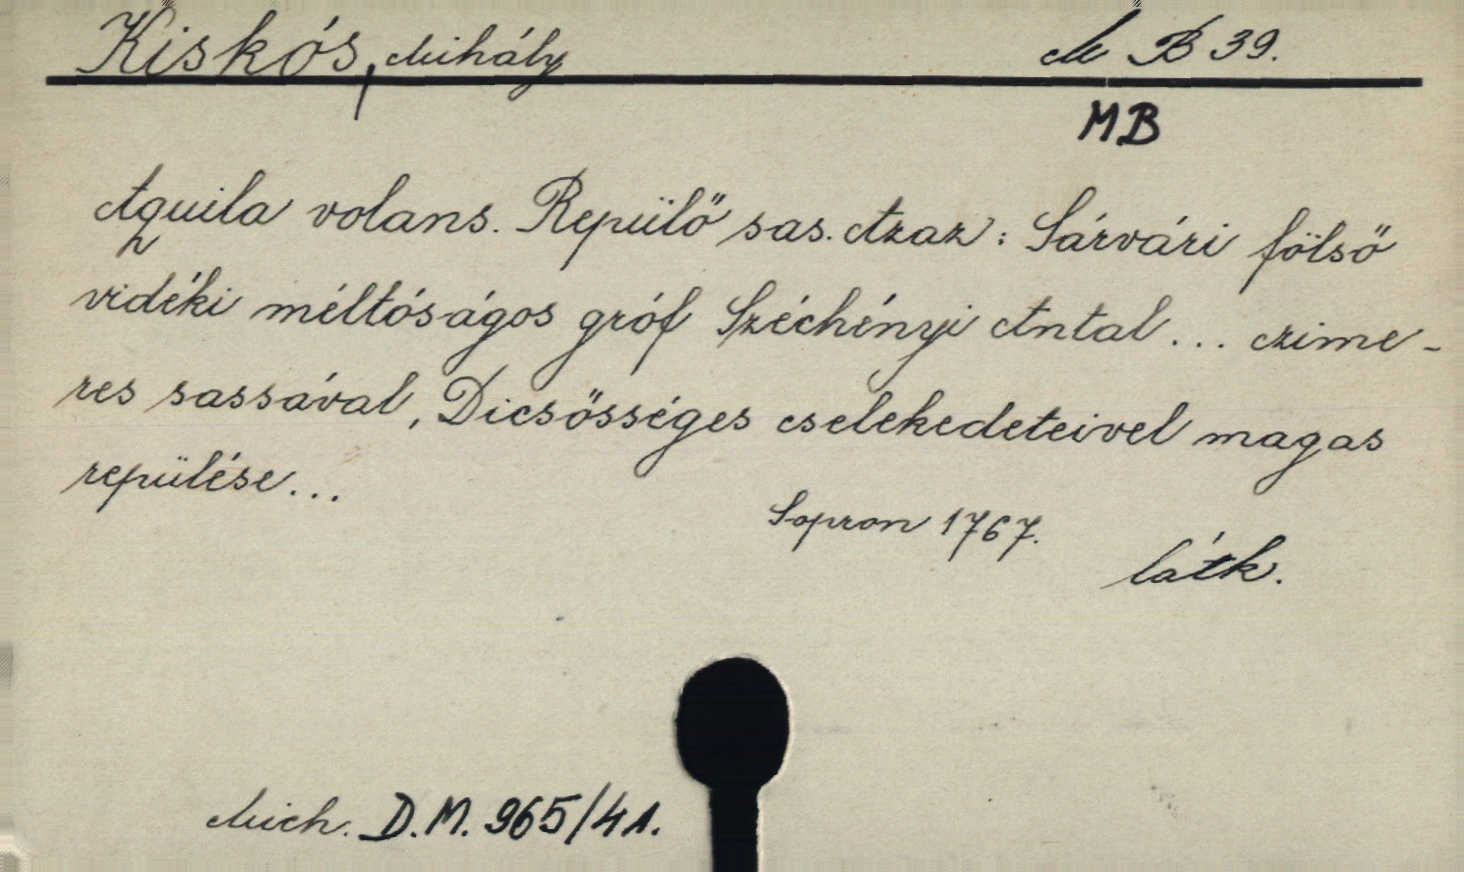 Kiskós, Mihály M B 39.
MB
Aquila volans. Repülő sas. Azaz: Sárvári fölső
vidéki méltóságos gróf Széchényi Antal... czime-
res sassával, Dicsősséges cselekedeteivel magas
repülése...
Sopron 1767.
látk.
Mich. D.M. 965/41.